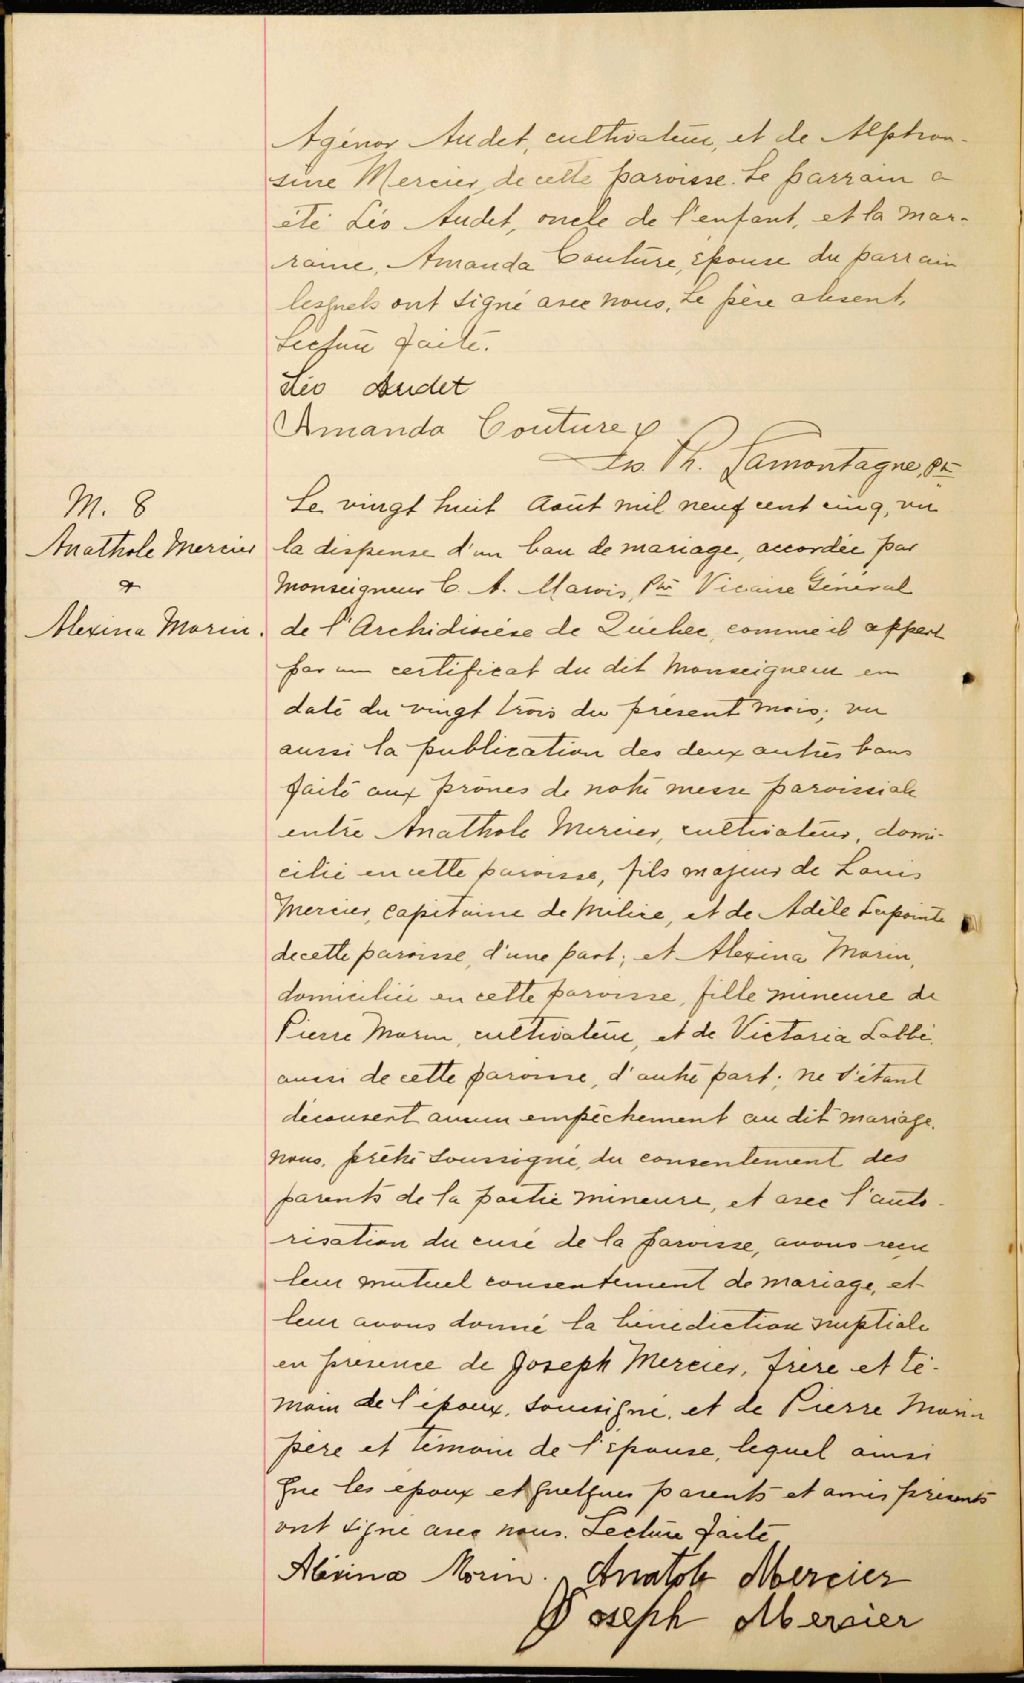 Agénor Audet, cultivateur, et de Alphon-
sine Mercier, de cette paroisse. Le parrain a
été Léo Audet, oncle de l'enfant, et la mar-
raine, Amanda Couture, épouse du parrain
lesquels ont signé avec nous. Le père absent.
Lecture faite.
Léo Audet
Amanda Couture
Jos. Ph. Lamontagne, Ptre
M. 8
Anathole Mercier
&
Alexina Morin.
Le vingt huit Août mil neuf cent cinq, vu
la dispense d'un ban de mariage, accordée par
Monseigneur C. A. Marois, Ptre Vicaire Général
de l'Archidiocèse de Québec, comme il appert
par un certificat du dit Monseigneur en
date du vingt trois du présent mois; vu
aussi la publication des deux autres bans
faite aux prônes de notre messe paroissiale
entre Anathole Mercier, cultivateur, domi-
cilié en cette paroisse, fils majeur de Louis
Mercier, capitaine de Milice, et de Adèle Lapointe
de cette paroisse, d'une part; et Alexina Morin,
domiciliée en cette paroisse, fille mineure de
Pierre Morin, cultivateur, et de Victoria Labbé,
aussi de cette paroisse, d'autre part; ne s'étant
découvert aucun empêchement au dit mariage.
nous, prêtre soussigné, du consentement des
parents de la partie mineure, et avec l'auto-
risation du curé de la paroisse, avons reçu
leur mutuel consentement de mariage, et
leur avons donné la bénédiction nuptiale
en présence de Joseph Mercier, frère et té-
moin de l'époux, soussigné, et de Pierre Morin
père et témoin de l'épouse, lequel ainsi
que les époux et quelques parents et amis présents
ont signé avec nous. Lecture faite
Aléxina Morin. Anatole Mercier
Joseph Mercier